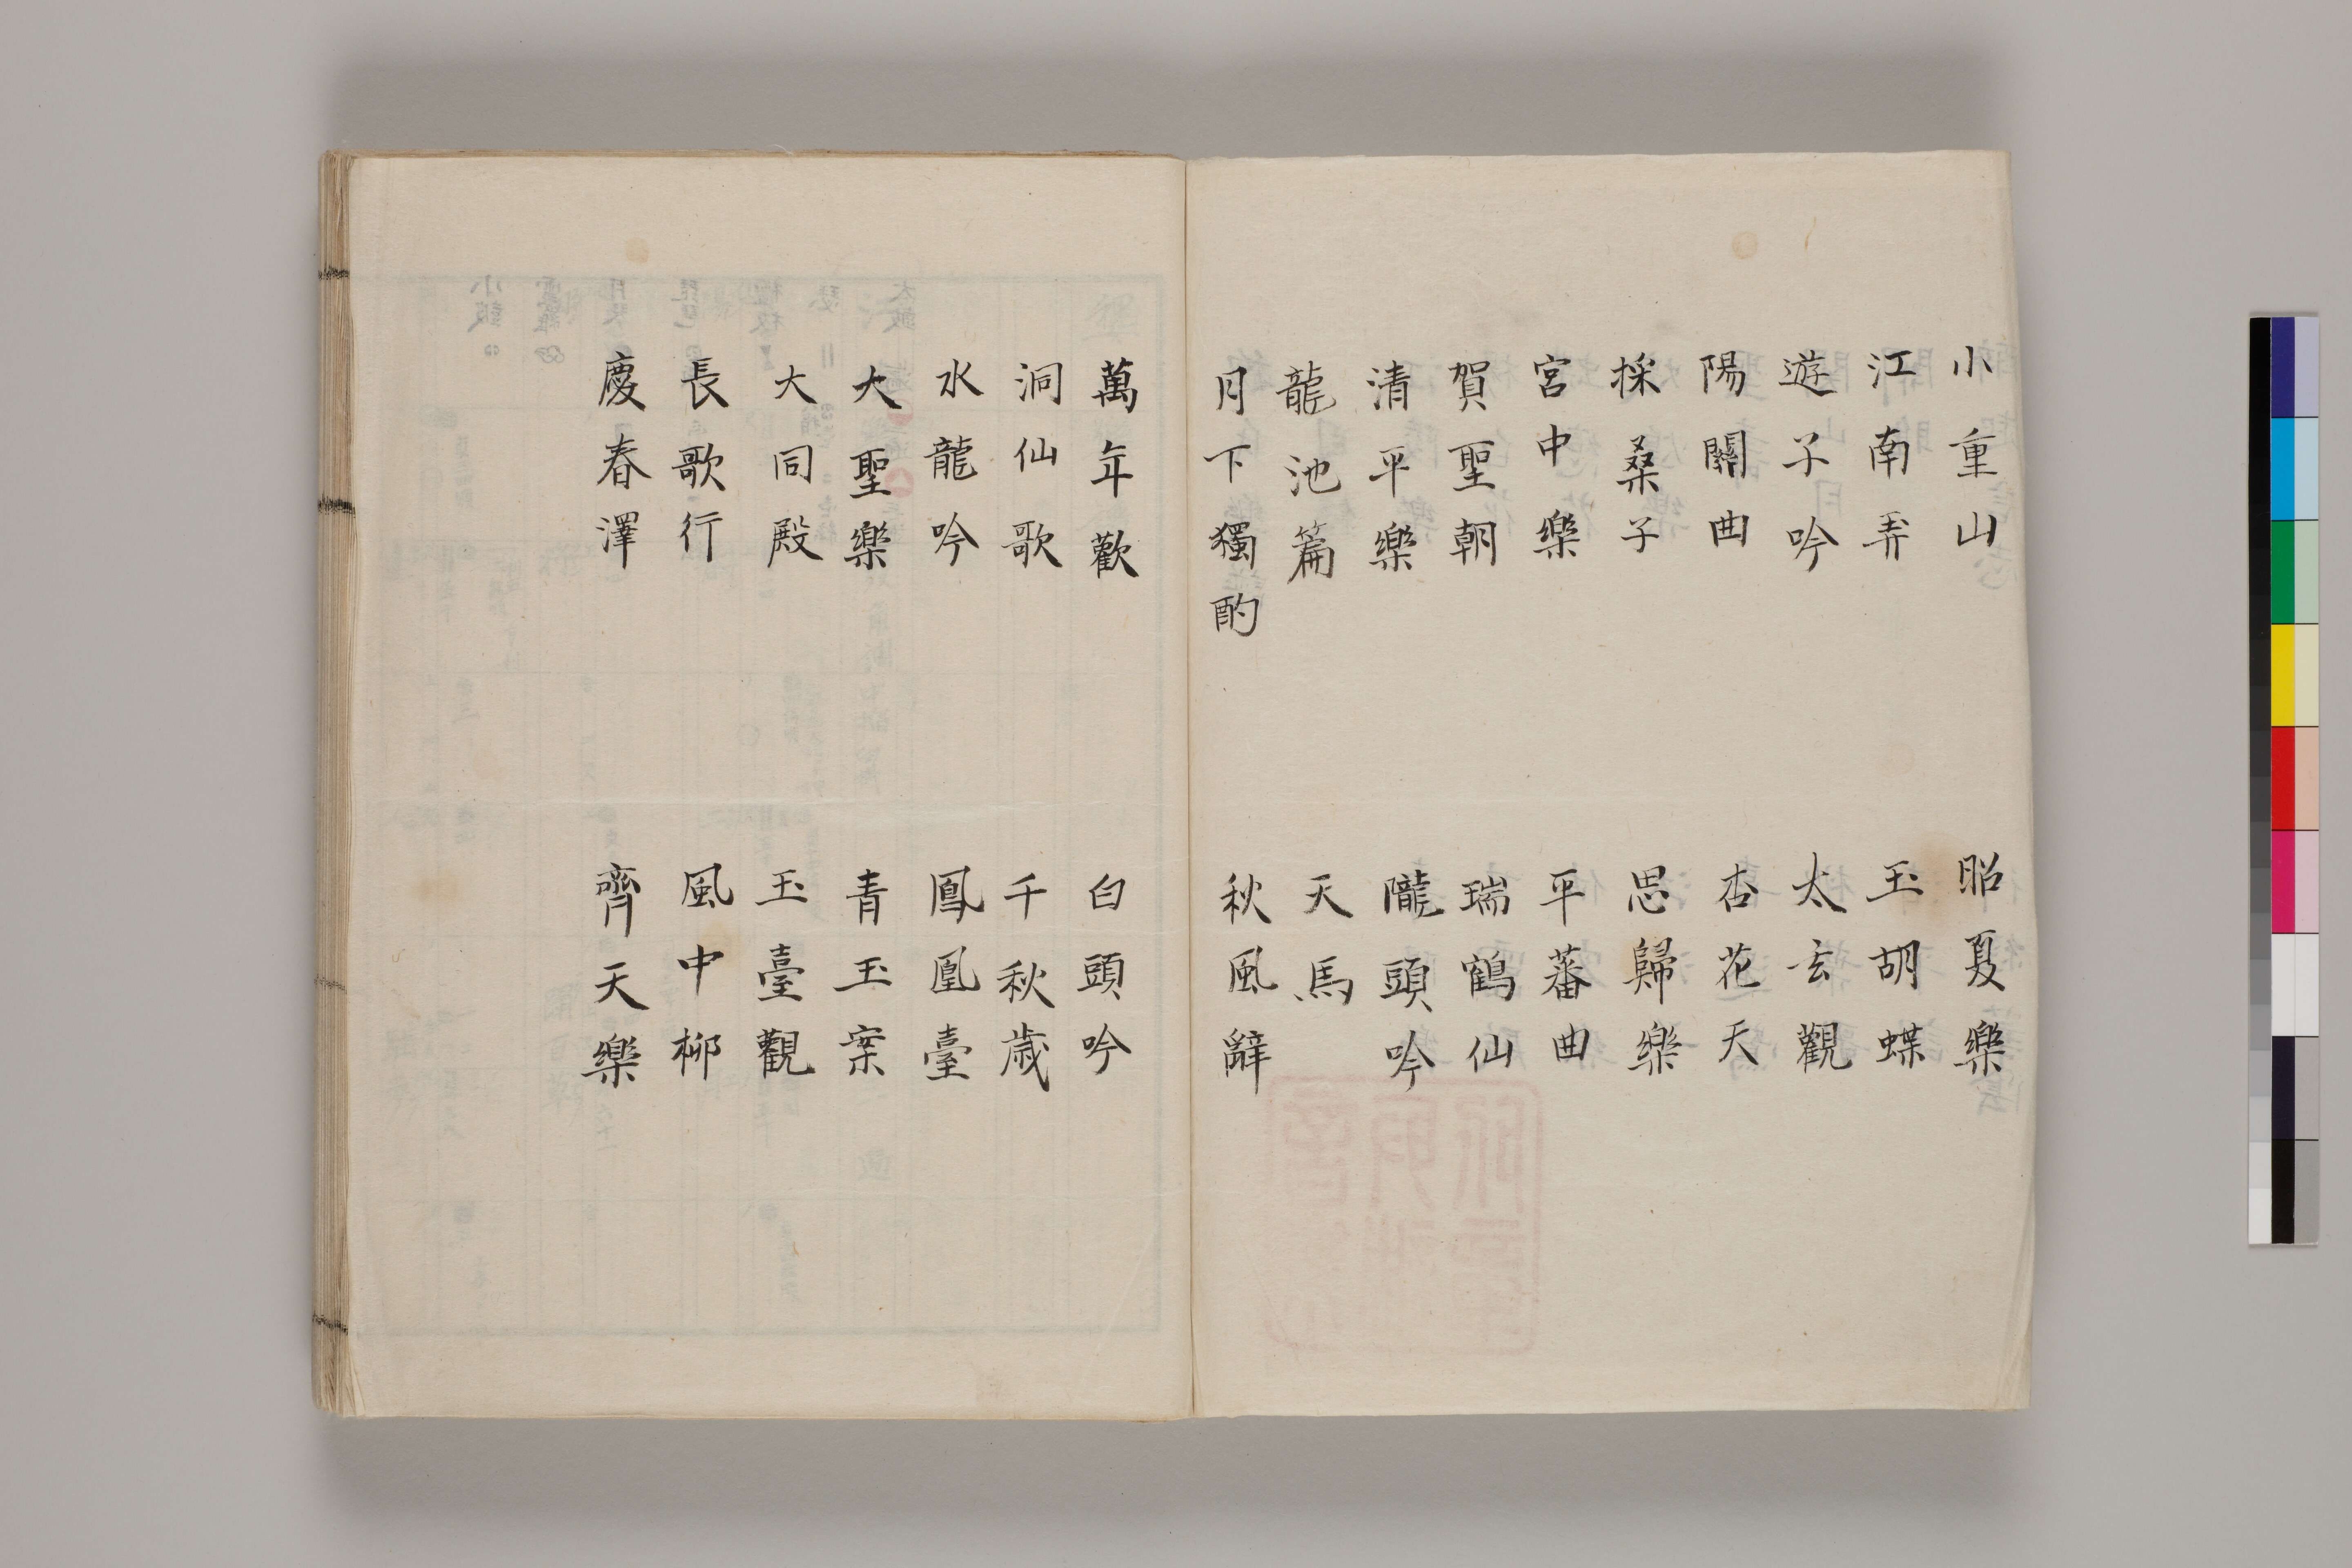 小重山 昭夏樂
江南弄 玉胡蝶
遊子吟 太玄觀
陽關曲 杏花天
採桑子 思歸樂
宮中樂 平蕃曲
賀聖朝 瑞鶴仙
清平樂 隴頭吟
龍池篇 天馬
月下獨酌 秋風辭
萬年歡 白頭吟
洞仙歌 千秋歲
水龍吟 鳳凰臺
大聖樂 青玉案
大同殿 玉臺觀
長歌行 風中柳
慶春澤 齊天樂